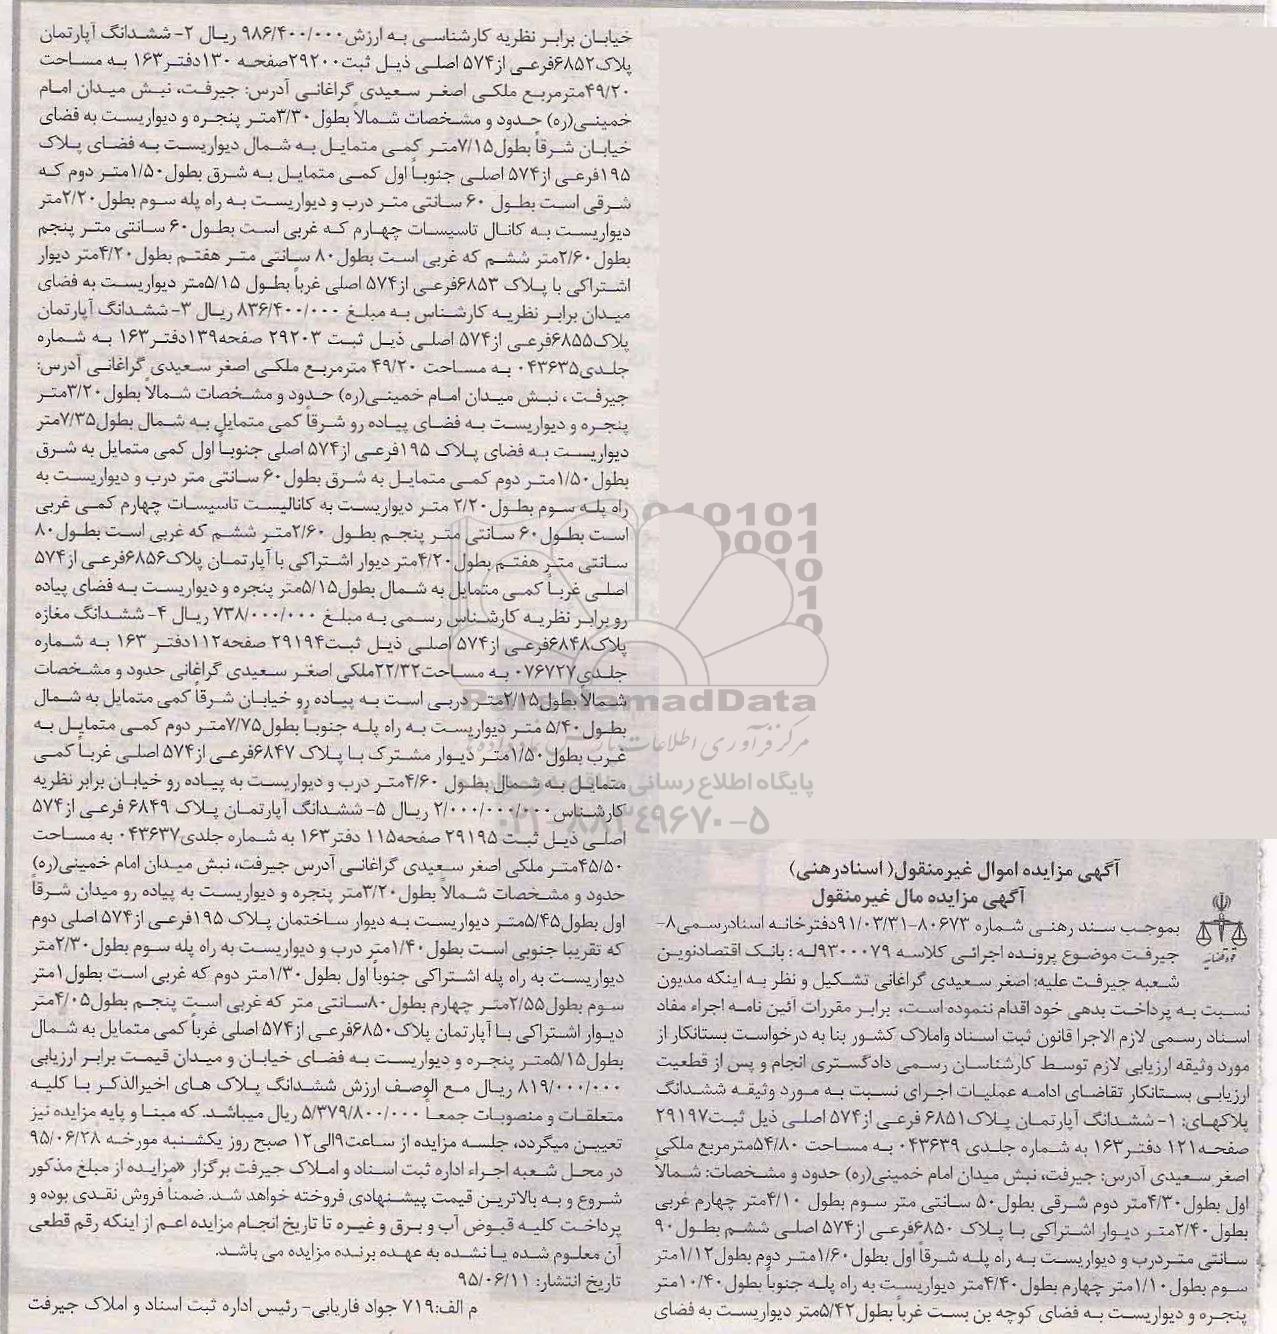 آگهی مزایده اموال غیرمنقول( اسنادرهنی)
آگهی مزایده مال غیرمنقول
بموجب سند رهنی شماره ۸۰۶۷۳-۹۱/۰۳/۳۱دفترخانه اسنادرسمی۸-
جیرفت موضوع پرونده اجرائی کلاسه ۹۳۰۰۰۷۹له : بانک اقتصادنوین
شعبه جیرفت علیه: اصغر سعیدی گراغانی تشکیل و نظر به اینکه مدیون
نسبت به پرداخت بدهی خود اقدام ننموده است، برابر مقررات آئین نامه اجراء مفاد
اسناد رسمی لازم الاجرا قانون ثبت اسناد واملاک کشور بنا به درخواست بستانکار از
مورد وثیقه ارزیابی لازم توسط کارشناسان رسمی دادگستری انجام و پس از قطعیت
ارزیابی بستانکار تقاضای ادامه عملیات اجرای نسبت به مورد وثیقه ششدانگ
پلاکهای: ۱- ششدانگ آپارتمان پلاک۶۸۵۱ فرعی از۵۷۴ اصلی ذیل ثبت۲۹۱۹۷
صفحه۱۲۱ دفتر۱۶۳ به شماره جلدی ۰۴۳۶۳۹ به مساحت ۵۴/۸۰مترمربع ملکی
اصغر سعیدی آدرس: جیرفت، نبش میدان امام خمینی(ره) حدود و مشخصات: شمالاً
اول بطول۴/۳۰متر دوم شرقی بطول۵۰ سانتی متر سوم بطول ۴/۱۰متر چهارم غربی
بطول۲/۴۰متر دیوار اشتراکی با پلاک ۶۸۵۰فرعی از۵۷۴ اصلی ششم بطول۹۰
سانتی متردرب و دیواریست به راه پله شرقاً اول بطول۱/۶۰متر دوم بطول۱/۱۲متر
سوم بطول۱/۱۰متر چهارم بطول۴/۴۰متر دیواریست به راه پله جنوباً بطول۱۰/۴۰متر
پنجره و دیواریست به فضای کوچه بن بست غرباً بطول۵/۴۲متر دیواریست به فضای
خیابان برابر نظریه کارشناسی به ارزش۹۸۶/۴۰۰/۰۰۰ ریال ۲- ششدانگ آپارتمان
پلاک۶۸۵۲فرعی از۵۷۴ اصلی ذیل ثبت۲۹۲۰۰صفحه ۱۳۰دفتر۱۶۳ به مساحت
۴۹/۲۰مترمربع ملکی اصغر سعیدی گراغانی آدرس: جیرفت، نبش میدان امام
خمینی(ره) حدود و مشخصات شمالاً بطول۳/۳۰متر پنجره و دیواریست به فضای
خیابان شرقاً بطول۷/۱۵متر کمی متمایل به شمال دیواریست به فضای پلاک
۱۹۵فرعی از۵۷۴ اصلی جنوباً اول کمی متمایل به شرق بطول۱/۵۰متر دوم که
شرقی است بطول ۶۰ سانتی متر درب و دیواریست به راه پله سوم بطول۲/۲۰متر
دیواریست به کانال تاسیسات چهارم که غربی است بطول۶۰ سانتی متر پنجم
بطول۲/۶۰متر ششم که غربی است بطول۸۰ سانتی متر هفتم بطول۴/۲۰متر دیوار
اشتراکی با پلاک ۶۸۵۳فرعی از۵۷۴ اصلی غرباً بطول ۵/۱۵متر دیواریست به فضای
میدان برابر نظریه کارشناس به مبلغ ۸۳۶/۴۰۰/۰۰۰ ریال ۳- ششدانگ آپارتمان
پلاک۶۸۵۵فرعی از۵۷۴ اصلی ذیل ثبت ۲۹۲۰۳ صفحه۱۳۹دفتر۱۶۳ به شماره
جلدی۰۴۳۶۳۵ به مساحت ۴۹/۲۰ مترمربع ملکی اصغر سعیدی گراغانی آدرس:
جیرفت ، نبش میدان امام خمینی(ره) حدود و مشخصات شمالاً بطول۳/۲۰متر
پنجره و دیواریست به فضای پیاده رو شرقاً کمی متمایل به شمال بطول۷/۳۵متر
دیواریست به فضای پلاک ۱۹۵فرعی از۵۷۴ اصلی جنوباً اول کمی متمایل به شرق
بطول۱/۵۰متر دوم کمی متمایل به شرق بطول۶۰ سانتی متر درب و دیواریست به
راه پله سوم بطول۲/۲۰ متر دیواریست به کانالیست تاسیسات چهارم کمی غربی
است بطول۶۰ سانتی متر پنجم بطول ۲/۶۰متر ششم که غربی است بطول۸۰
سانتی متر هفتم بطول۴/۲۰متر دیوار اشتراکی با آپارتمان پلاک۶۸۵۶فرعی از۵۷۴
اصلی غرباً کمی متمایل به شمال بطول۵/۱۵متر پنجره و دیواریست به فضای پیاده
رو برابر نظریه کارشناس رسمی به مبلغ ۷۳۸/۰۰۰/۰۰۰ ریال ۴- ششدانگ مغازه
پلاک۶۸۴۸فرعی از۵۷۴ اصلی ذیل ثبت۲۹۱۹۴ صفحه۱۱۲دفتر ۱۶۳ به شماره
جلدی۰۷۶۷۲۷ به مساحت۲۲/۳۲ملکی اصغر سعیدی گراغانی حدود و مشخصات
شمالاً بطول۲/۱۵متر دربی است به پیاده رو خیابان شرقاً کمی متمایل به شمال
بطول۵/۴۰ متر دیواریست به راه پله جنوباً بطول۷/۷۵متر دوم کمی متمایل به
غرب بطول۱/۵۰متر دیوار مشترک با پلاک ۶۸۴۷فرعی از۵۷۴ اصلی غرباً کمی
متمایل به شمال بطول ۴/۶۰متر درب و دیواریست به پیاده رو خیابان برابر نظریه
کارشناس۲/۰۰۰/۰۰۰/۰۰۰ ریال ۵- ششدانگ آپارتمان پلاک ۶۸۴۹ فرعی از۵۷۴
اصلی ذیل ثبت ۲۹۱۹۵ صفحه۱۱۵ دفتر۱۶۳ به شماره جلدی۰۴۳۶۳۷ به مساحت
۴۵/۵۰متر ملکی اصغر سعیدی گراغانی آدرس جیرفت، نبش میدان امام خمینی(ره)
حدود و مشخصات شمالاً بطول۳/۲۰متر پنجره و دیواریست به پیاده رو میدان شرقاً
اول بطول۵/۴۵متر دیواریست به دیوار ساختمان پلاک ۱۹۵فرعی از۵۷۴ اصلی دوم
که تقریبا جنوبی است بطول۱/۴۰متر درب و دیواریست به راه پله سوم بطول۲/۳۰متر
دیواریست به راه پله اشتراکی جنوباً اول بطول۱/۳۰متر دوم که غربی است بطول۱متر
سوم بطول۲/۵۵متر چهارم بطول۸۰سانتی متر که غربی است پنجم بطول۴/۰۵متر
دیوار اشتراکی با آپارتمان پلاک۶۸۵۰فرعی از۵۷۴ اصلی غرباً کمی متمایل به شمال
بطول۵/۱۵متر پنجره و دیواریست به فضای خیابان و میدان قیمت برابر ارزیابی
۸۱۹/۰۰۰/۰۰۰ ریال مع الوصف ارزش ششدانگ پلاک های اخیرالذکر با کلیه
متعلقات و منصوبات جمعاً ۵/۳۷۹/۸۰۰/۰۰۰ ریال میباشد. که مبنا و پایه مزایده نیز
تعیین میگردد، جلسه مزایده از ساعت۹الی۱۲ صبح روز یکشنبه مورخه ۹۵/۰۶/۲۸
در محل شعبه اجراء اداره ثبت اسناد و املاک جیرفت برگزار «مزایده از مبلغ مذکور
شروع و به بالاترین قیمت پیشنهادی فروخته خواهد شد. ضمناً فروش نقدی بوده و
پرداخت کلیه قبوض آب و برق و غیره تا تاریخ انجام مزایده اعم از اینکه رقم قطعی
آن معلوم شده یا نشده به عهده برنده مزایده می باشد.
تاریخ انتشار: ۹۵/۰۶/۱۱
م الف:۷۱۹ جواد فاریابی- رئیس اداره ثبت اسناد و املاک جیرفت
ParsNamadData
پایگاه اطلاع رسانی
۰۲۱-۸۸۳۴۹۶۷۰-۵